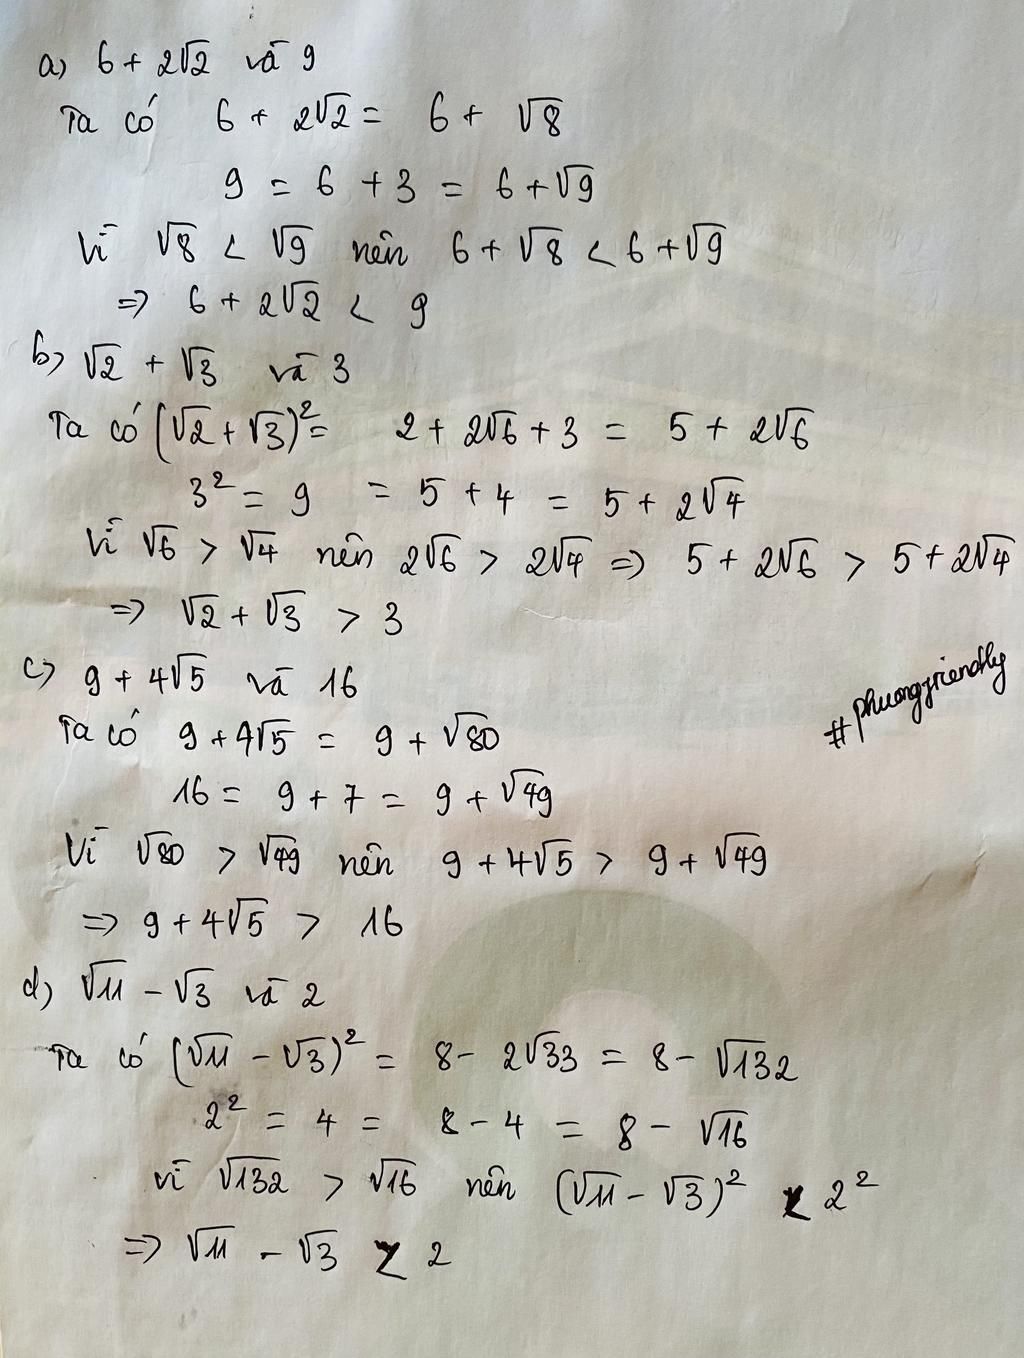 a) 6 + 2√2 và 9
Ta có 6 + 2√2 = 6 + √8
9 = 6 + 3 = 6 + √9
Vì √8 < √9 nên 6 + √8 < 6 + √9
=> 6 + 2√2 < 9
b) √2 + √3 và 3
Ta có (√2 + √3)² = 2 + 2√6 + 3 = 5 + 2√6
3² = 9 = 5 + 4 = 5 + 2√4
Vì √6 > √4 nên 2√6 > 2√4 => 5 + 2√6 > 5 + 2√4
=> √2 + √3 > 3
c) 9 + 4√5 và 16
#phuongfriendly
Ta có 9 + 4√5 = 9 + √80
16 = 9 + 7 = 9 + √49
Vì √80 > √49 nên 9 + 4√5 > 9 + √49
=> 9 + 4√5 > 16
d) √11 - √3 và 2
Ta có (√11 - √3)² = 8 - 2√33 = 8 - √132
2² = 4 = 8 - 4 = 8 - √16
Vì √132 > √16 nên (√11 - √3)² < 2²
=> √11 - √3 < 2